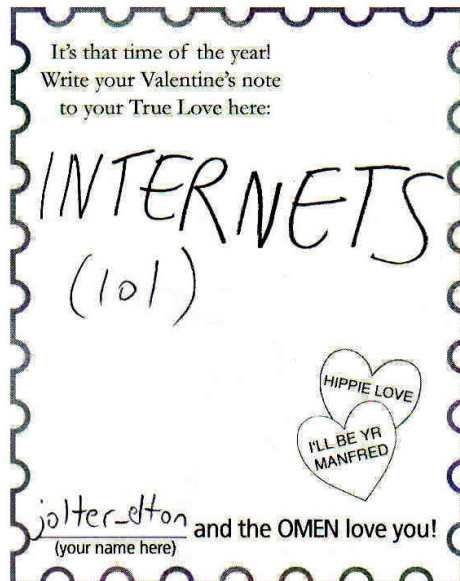 It's that time of the year!
Write your Valentine's note
to your True Love here:
INTERNETS
(lol)
HIPPIE LOVE
I'LL BE YR
MANFRED
jolter_elton and the OMEN love you!
(your name here)